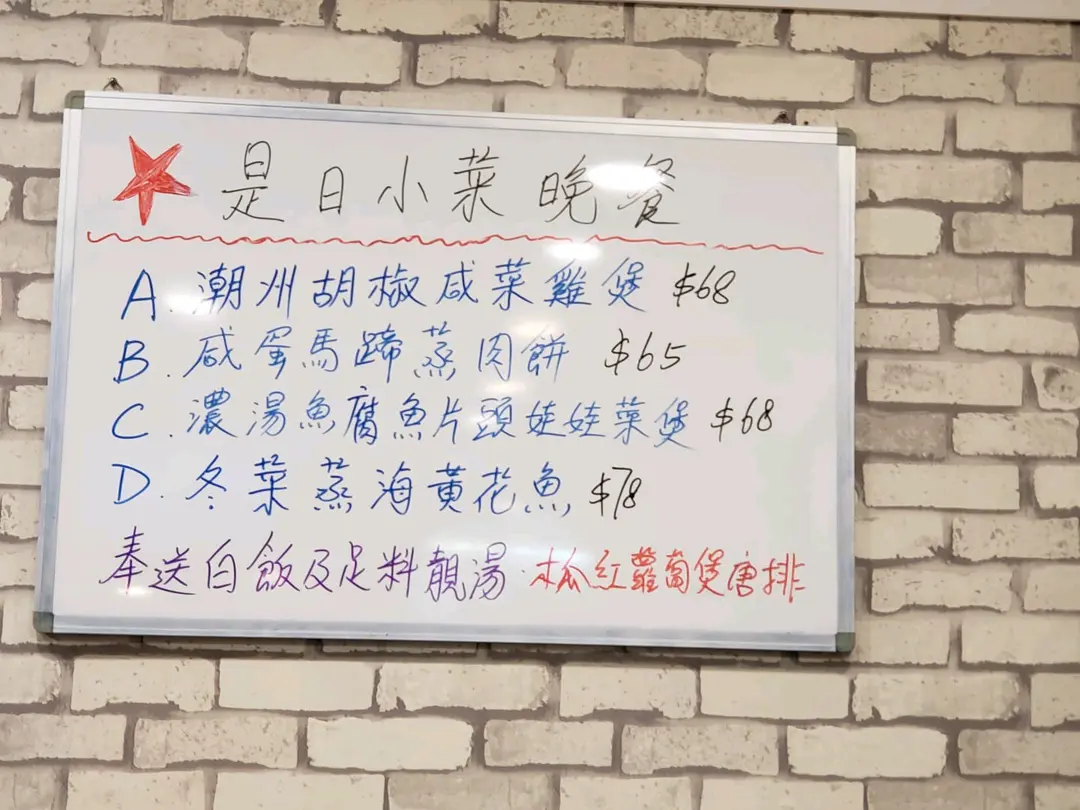 是日小菜晚餐
A. 潮州胡椒咸菜雞煲 $68
B. 咸蛋馬蹄蒸肉餅 $65
C. 濃湯魚腐魚片頭娃娃菜煲 $68
D. 冬菜蒸海黃花魚 $78
奉送白飯及足料靚湯·木瓜紅蘿蔔煲唐排